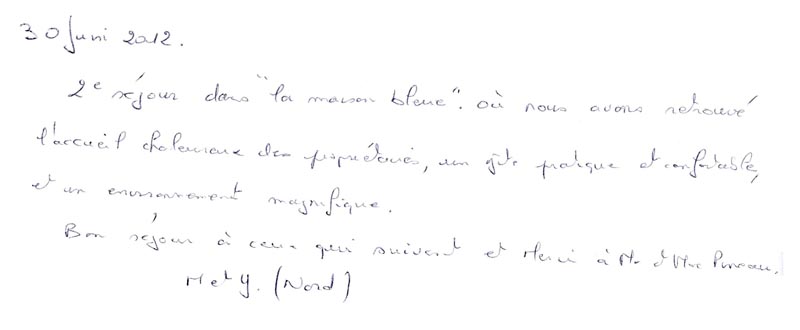 30 Juni 2012.
2e séjour dans "la maison bleue". où nous avons retrouvé
l'accueil chaleureux des propriétaires, un gîte pratique et confortable,
et un environnement magnifique.
Bon séjour à ceux qui suivent et Merci à Mr et Mme
M et Y. (Nord)